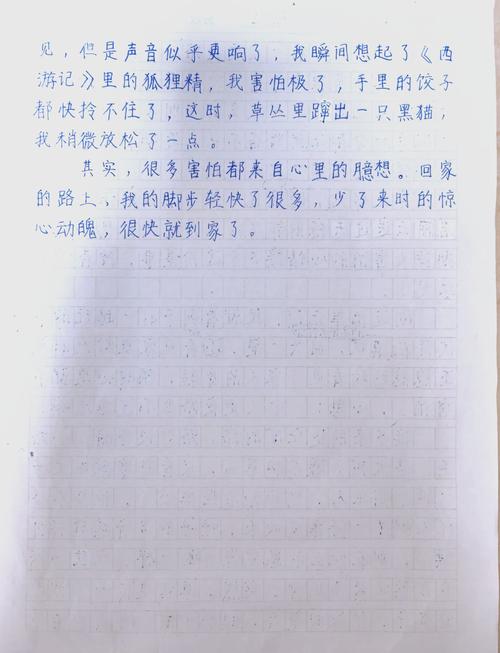 见，但是声音似乎更响了，我瞬间想起了《西
游记》里的狐狸精，我害怕极了，手里的饺子
都快拎不住了，这时，草丛里蹿出一只黑猫，
我稍微放松了一点。
其实，很多害怕都来自心里的臆想。回家
的路上，我的脚步轻快了很多，少了来时的惊
心动魄，很快就到家了。